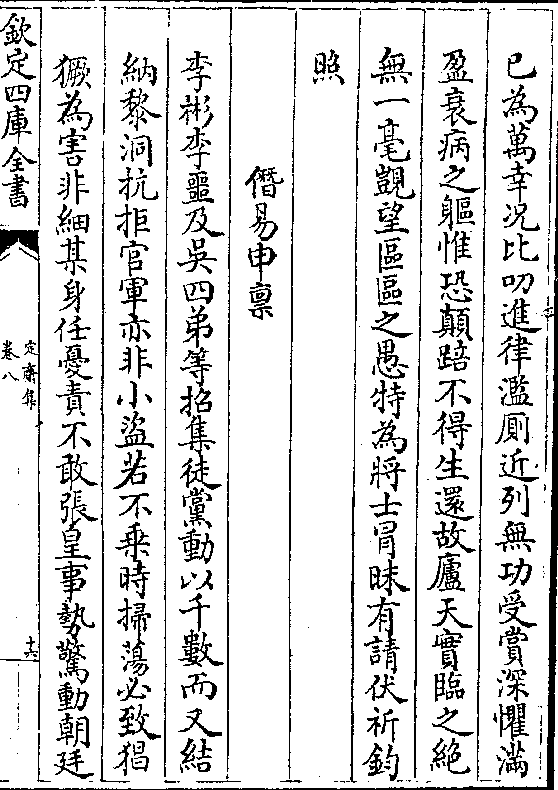 已為萬幸况比叨進律濫厠近列無功受賞深懼滿
盈衰病之軀惟恐顛踣不得生還故廬天實臨之絶
無一毫覬望區區之愚特為將士冒昧有請伏祈鈞
照
僭易申禀
李彬李噩及吳四弟等招集徒黨動以千數而又結
納黎洞抗拒官軍亦非小盜若不乗時掃蕩必致猖
獗為害非細某身任憂責不敢張皇事勢驚動朝廷
欽定四庫全書
定齋集
卷八
十六